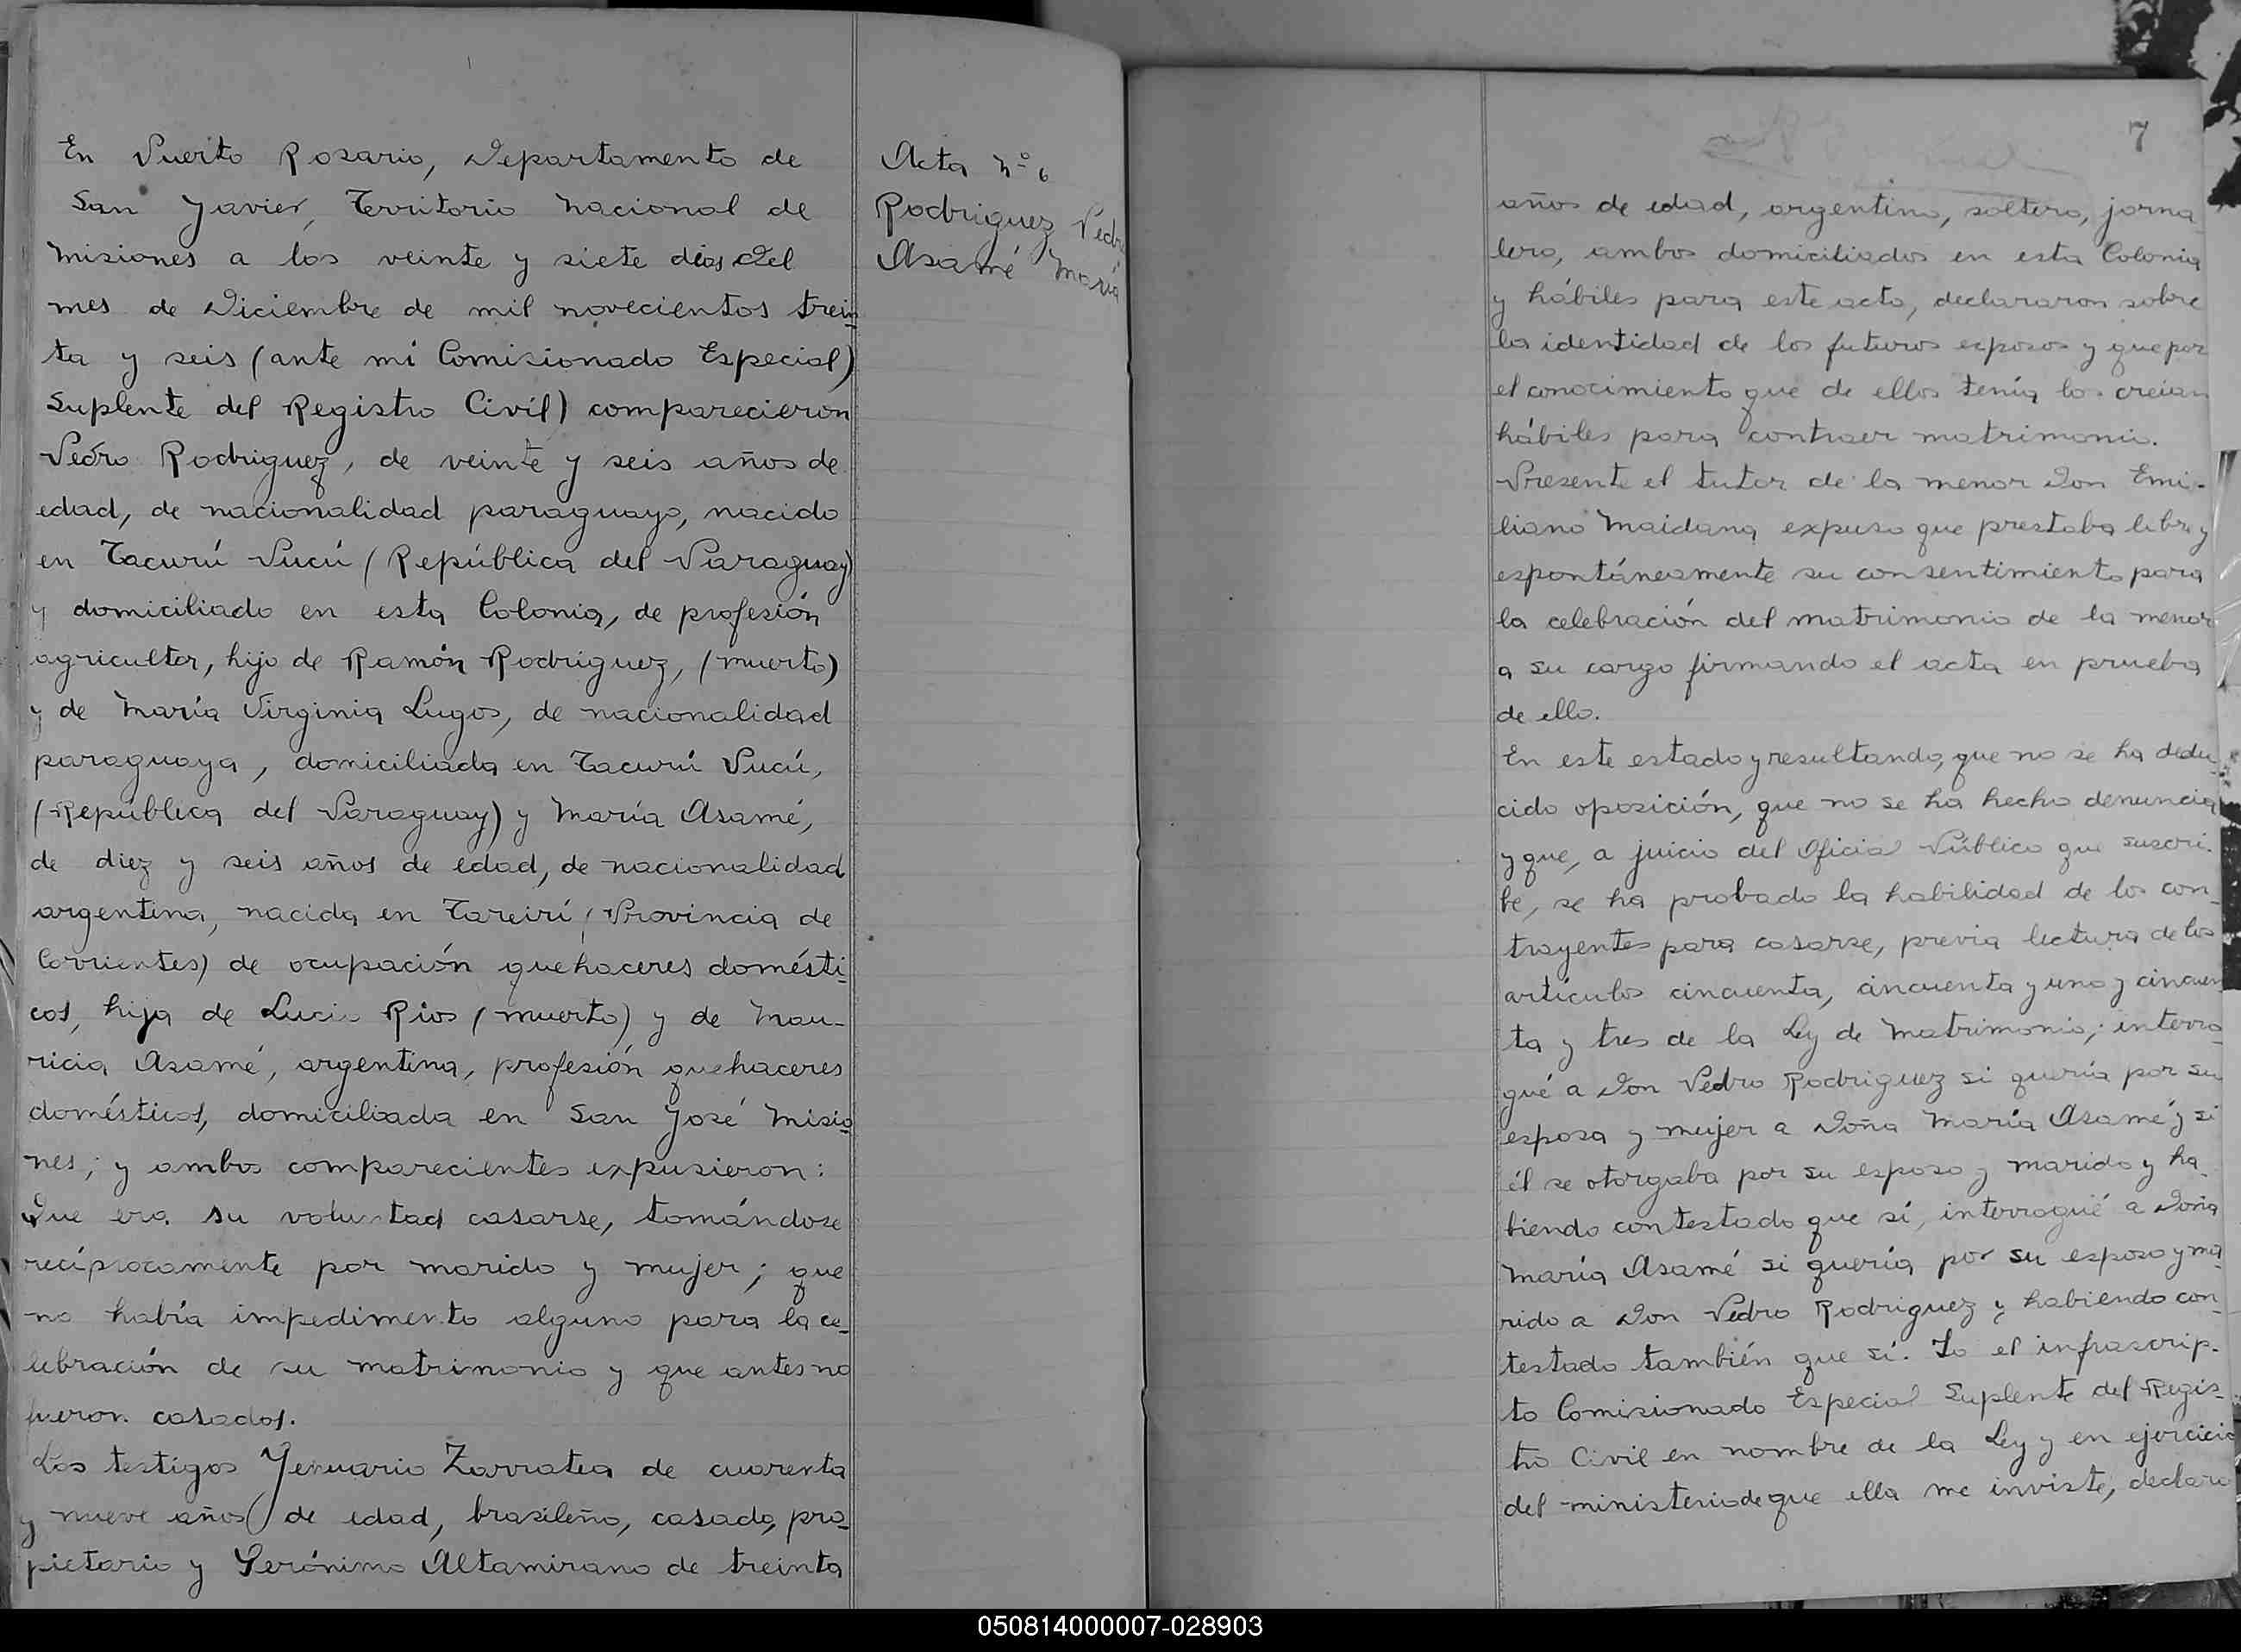 En Puerto Rosario, Departamento de
San Javier, Territorio Nacional de
Misiones a los veinte y siete dias del
mes de Diciembre de mil novecientos trein
ta y seis (ante mi Comisionado Especial)
Suplente del Registro Civil) comparecieron
Pedro Rodriguez, de veinte y seis años de
edad, de nacionalidad paraguayo, nacido
en Tacurú Pucú (República del Paraguay)
y domiciliado en esta Colonia, de profesión
agricultor, hijo de Ramón Rodriguez, (muerto)
y de María Virginia Lugos, de nacionalidad
paraguaya, domiciliada en Tacurú Pucú,
(República del Paraguay) y María Asamé,
de diez y seis años de edad, de nacionalidad
argentina, nacida en Tareirí (Provincia de
Corrientes) de ocupación quehaceres domésti
cos, hija de Lucio Rios (muerto) y de Mau-
ricia Asamé, argentina, profesión quehaceres
domésticos, domiciliada en San José Misio
nes; y ambos comparecientes expusieron:
Que era su voluntad casarse, tomándose
recíprocamente por marido y mujer; que
no había impedimento alguno para la ce-
lebración de su matrimonio y que antes no
fueron casados.
Los testigos Jenuario Zarratea de cuarenta
y nueve años de edad, brasileño, casado, pro-
pietario y Gerónimo Altamirano de treinta
Acta Nº 6
Rodriguez Pedro
y
Asamé María
7
años de edad, argentino, soltero, jorna
lero, ambos domiciliados en esta Colonia
y hábiles para este acto, declararon sobre
la identidad de los futuros esposos y que por
el conocimiento que de ellos tenía los creian
hábiles para contraer matrimonio.
Presente el tutor de la menor Don Emi-
liano Maidana expuso que prestaba libre y
espontáneamente su consentimiento para
la celebración del matrimonio de la menor
a su cargo firmando el acta en prueba
de ello.
En este estado y resultando, que no se ha dedu
cido oposición, que no se ha hecho denuncia
y que, a juicio del Oficial Público que suscri-
be, se ha probado la habilidad de los con-
trayentes para casarse, previa lectura de los
artículos cincuenta, cincuenta y uno y cincuen
ta y tres de la Ley de Matrimonio; interro-
gué a Don Pedro Rodriguez si quería por su
esposa y mujer a Doña María Asamé y si
él se otorgaba por su esposo y marido y ha-
biendo contestado que sí, interrogué a Doña
María Asamé si quería por su esposo y ma
rido a Don Pedro Rodriguez y habiendo con-
testado también que sí. Yo el infrascrip-
to Comisionado Especial Suplente del Regis-
tro Civil en nombre de la Ley y en ejercicio
del ministerio de que ella me inviste, declaro
050814000007-028903